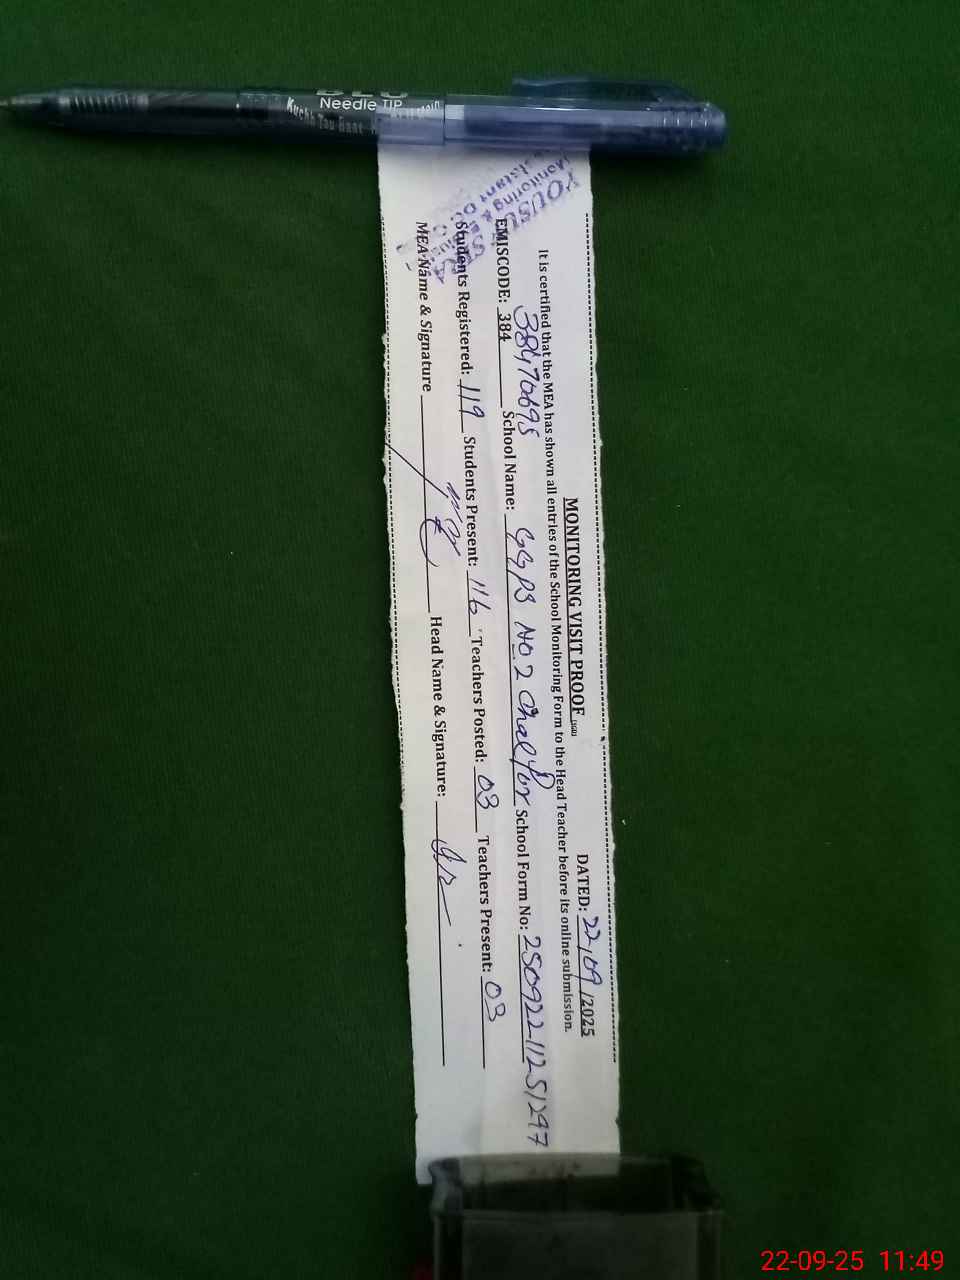 Needle TIP
MONITORING VISIT PROOF
DATED: 22/09/2025
It is certified that the MEA has shown all entries of the School Monitoring Form to the Head Teacher before its online submission.
EMISCODE: 384 38470695 School Name: GGPS NO.2 School Form No: 25092211251297
Students Registered: 119 Students Present: 116 Teachers Posted: 03 Teachers Present: 03
MEA Name & Signature Head Name & Signature:
Monitoring &
22-09-25 11:49